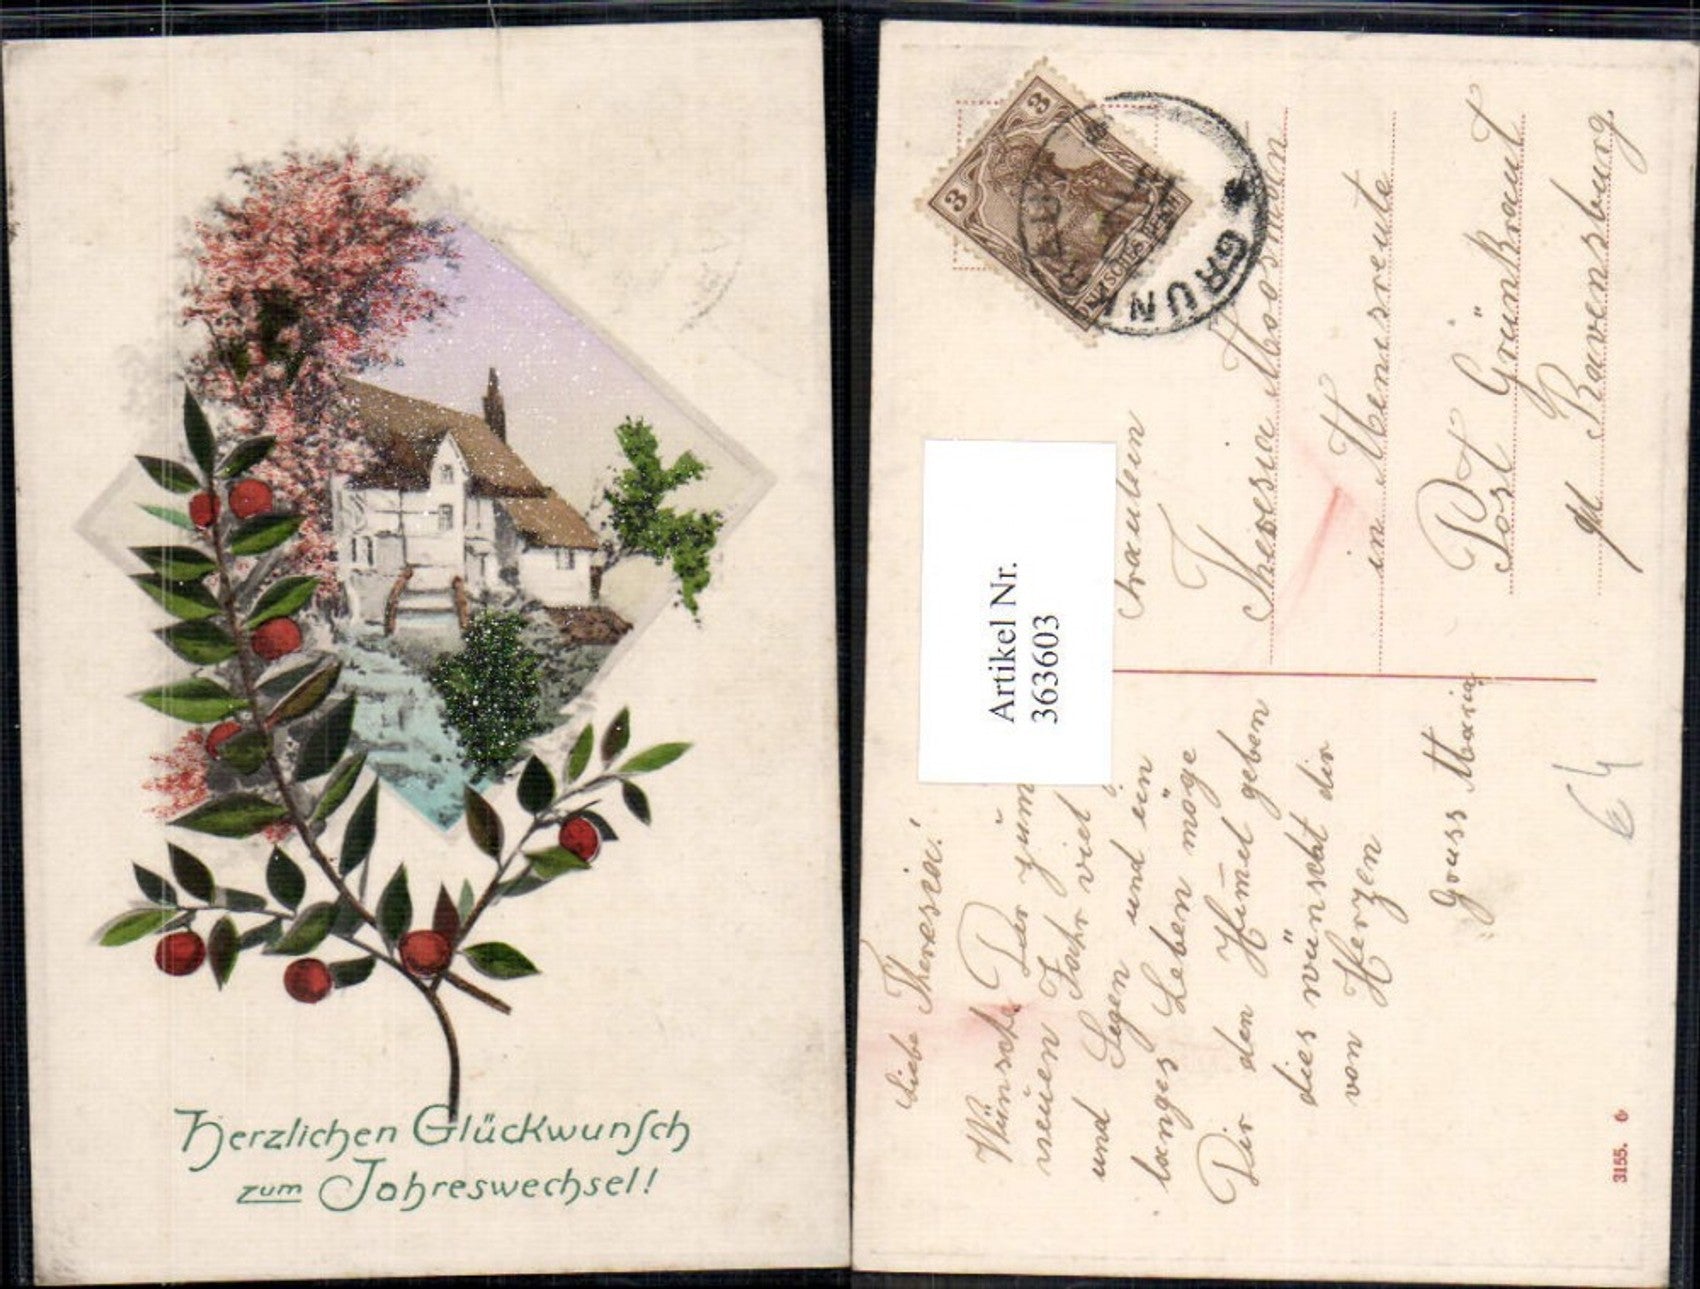 Herzlichen Glückwunsch
zum Jahreswechsel!
3
3
DEUTSCHES REICH
GRÜNKRAUT
Artikel Nr.
363603
Fräulein
Theresia Moosmann
in Menisreute
Post Grünkraut
Ravensburg.
Liebe Theresia!
Wünsche Dir zum
neuen Jahr viel
und Segen und ein
langes Leben möge
Dir den Himel geben
dies wünscht dir
von Herzen
Gruss Maria
3155. 6